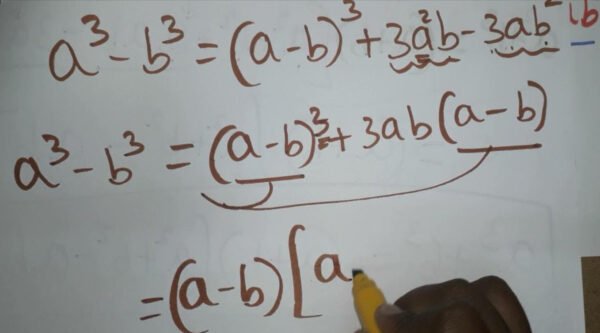 a³ - b³ = (a-b)³ + 3a²b - 3ab²
a³ - b³ = (a-b)³ + 3ab(a-b)
= (a-b)[a